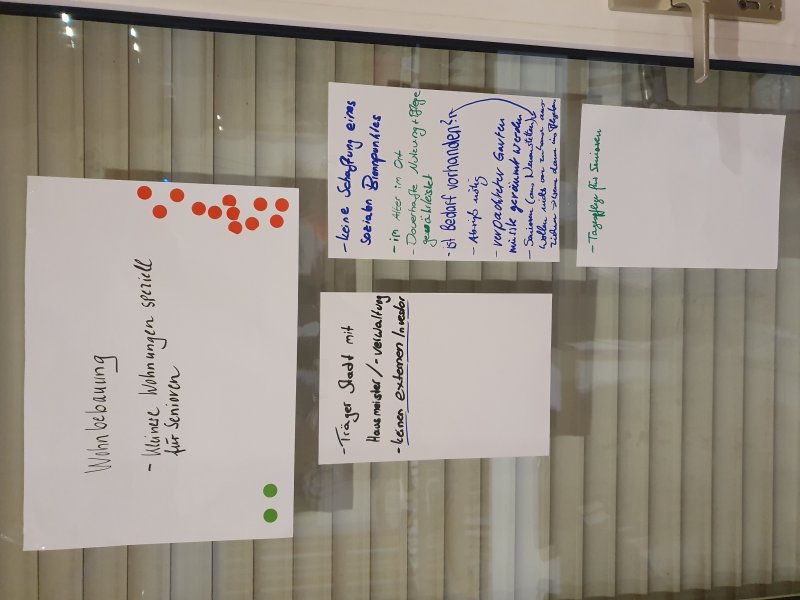 Wohnbebauung
- kleinere Wohnungen speziell
für Senioren
- Träger Stadt mit
Hausmeister/-verwaltung
- keinen externen Investor
- keine Schaffung eines
sozialen Brennpunktes
- im Alter im Ort
- Dauerhafte Nutzung + Pflege
gewährleistet
- ist Bedarf vorhanden?
- Abriß nötig
- verpachteter Garten
müsste geräumt werden
- Senioren
wollen nicht von zuhause aus
ziehen
- Tagespflege für Senioren